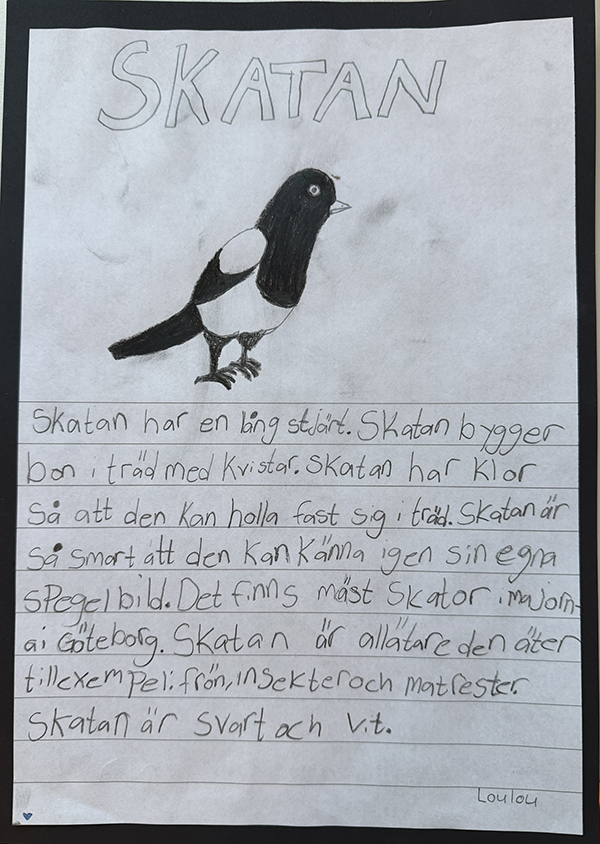 SKATAN
Skatan har en lång stjärt. Skatan bygger
bon i träd med kvistar. Skatan har klor
så att den kan holla fast sig i träd. Skatan är
så smart att den kan känna igen sin egna
spegelbild. Det finns mäst skator i majorn-
ai Göteborg. Skatan är allätare den äter
till exempel: frön, insekter och matrester.
Skatan är svart och vit.
Loulou